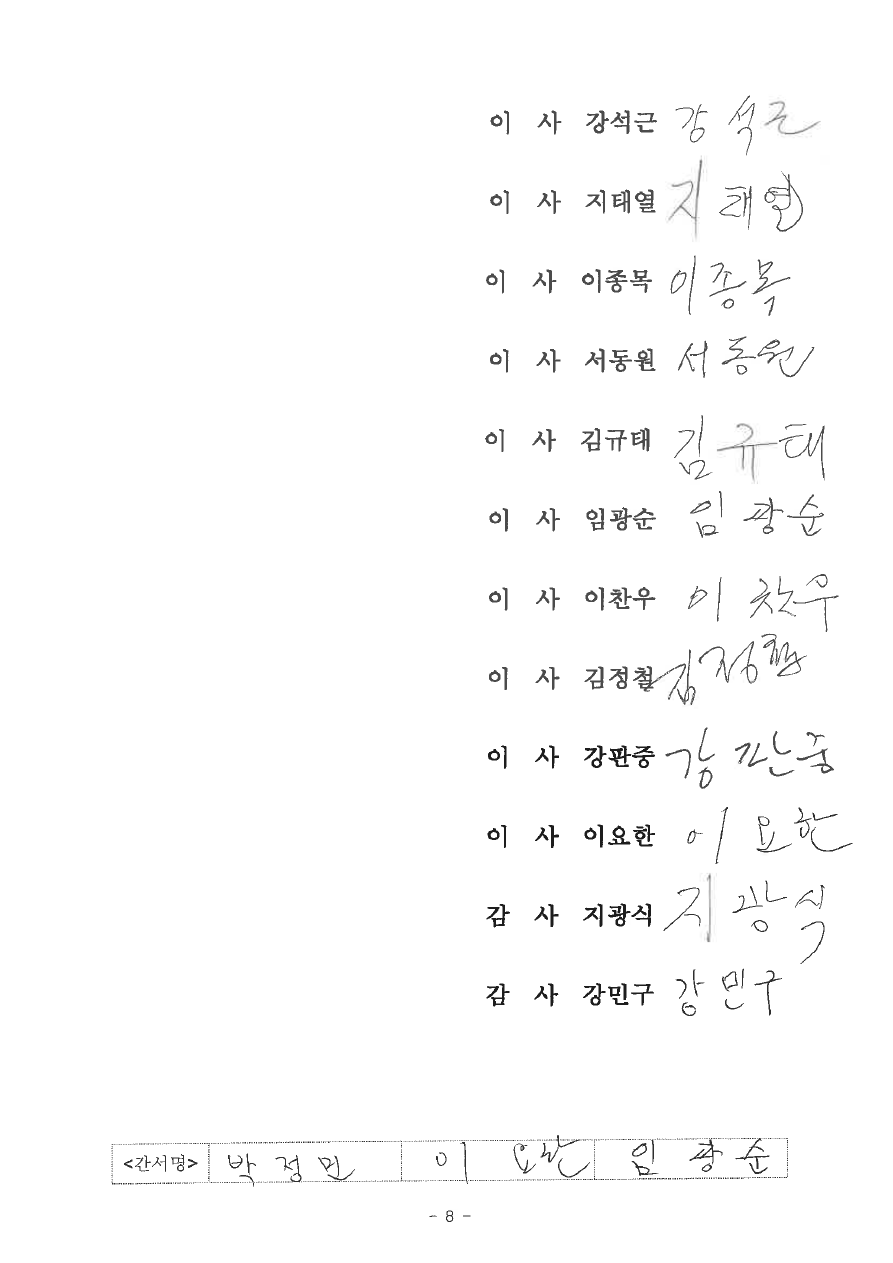 이 사 강석근 강석근
이 사 지태열 지태열
이 사 이종목 이종목
이 사 서동원 서동원
이 사 김규태 김규태
이 사 임광순 임광순
이 사 이찬우 이찬우
이 사 김정철 김정철
이 사 강판중 강판중
이 사 이요한 이요한
감 사 지광식 지광식
감 사 강민구 강민구
<간서명> 박정민 이요한 임광순
- 8 -